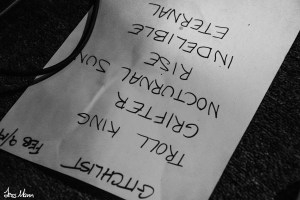 GITCHLIST FEB
TROLL KING
GRIFTER
NOCTURNAL SUN
RISE
INDELIBLE
ETERNAL